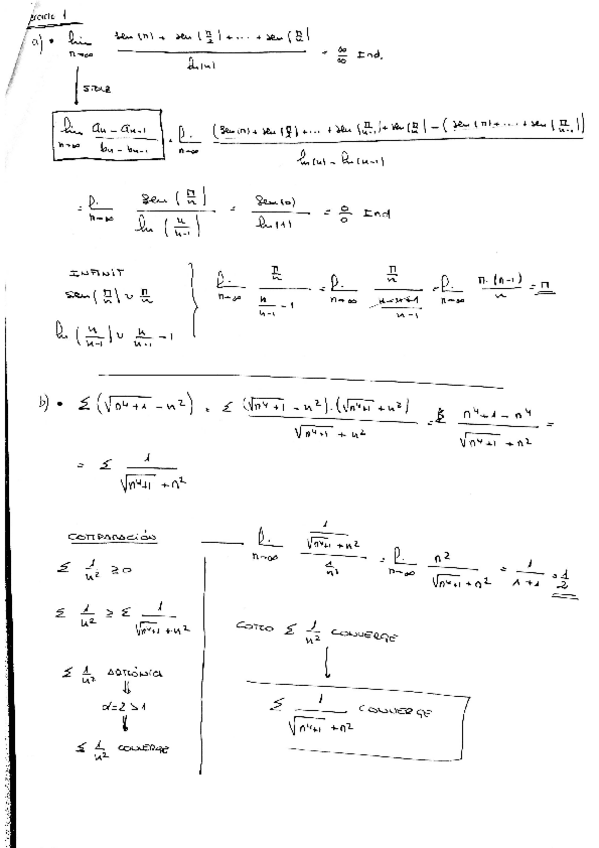 ercicio 1
a) • lim n→∞ (sen(π) + sen(π/2) + ... + sen(π/n)) / ln(n) = ∞/∞ Ind.
↓ STOLZ
lim n→∞ (an - an-1)/(bn - bn-1) = l. n→∞ ((sen(π) + sen(π/2) + ... + sen(π/n-1) + sen(π/n)) - (sen(π) + ... + sen(π/n-1))) / (ln(n) - ln(n-1))
= l. n→∞ sen(π/n) / ln(n/n-1) = sen(0)/ln(1) = 0/0 Ind
INFINIT
sen(π/n) ∪ π/n
ln(n/n-1) ∪ n/n-1 - 1
} l. n→∞ (π/n)/(n/n-1 - 1) = l. n→∞ (π/n)/((n-n+1)/(n-1)) = l. n→∞ π·(n-1)/n = π
b) • Σ(√n⁴+1 - n²) = Σ (√n⁴+1 - n²)·(√n⁴+1 + n²) / (√n⁴+1 + n²) = Σ (n⁴+1-n⁴)/(√n⁴+1 + n²) =
= Σ 1/(√n⁴+1 + n²)
COMPARACIÓN
Σ 1/n² ≥ 0
Σ 1/n² ≥ Σ 1/(√n⁴+1 + n²)
Σ 1/n² ARMÓNICA
⇓
α=2>1
↓
Σ 1/n² CONVERGE
l. n→∞ (1/(√n⁴+1 + n²))/(1/n²) = l. n→∞ n²/(√n⁴+1 + n²) = 1/(1+1) = 1/2
COMO Σ 1/n² CONVERGE
↓
Σ 1/(√n⁴+1 + n²) CONVERGE